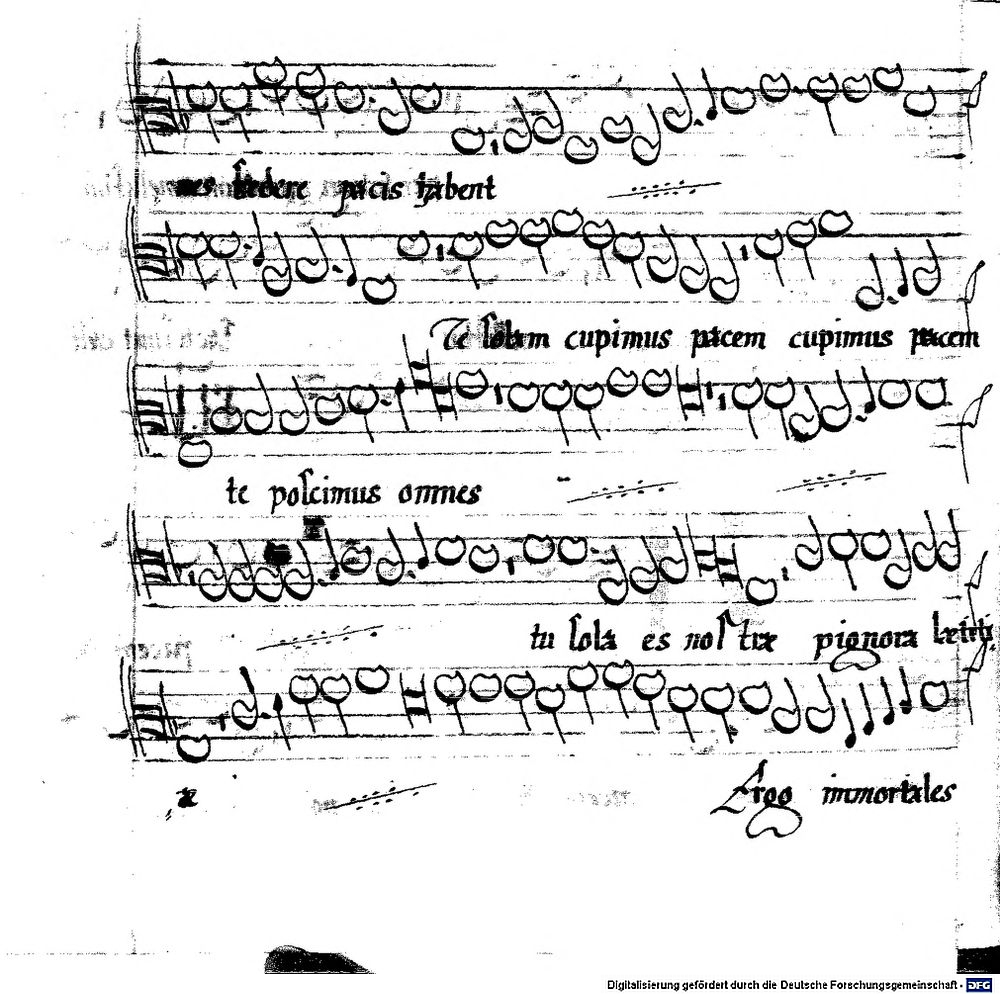 nes fœdere pacis habent
Te solam cupimus pacem cupimus pacem
te poscimus omnes
tu sola es nostræ pignora lætiti
æ
Ergo immortales
Digitalisierung gefördert durch die Deutsche Forschungsgemeinschaft - DFG